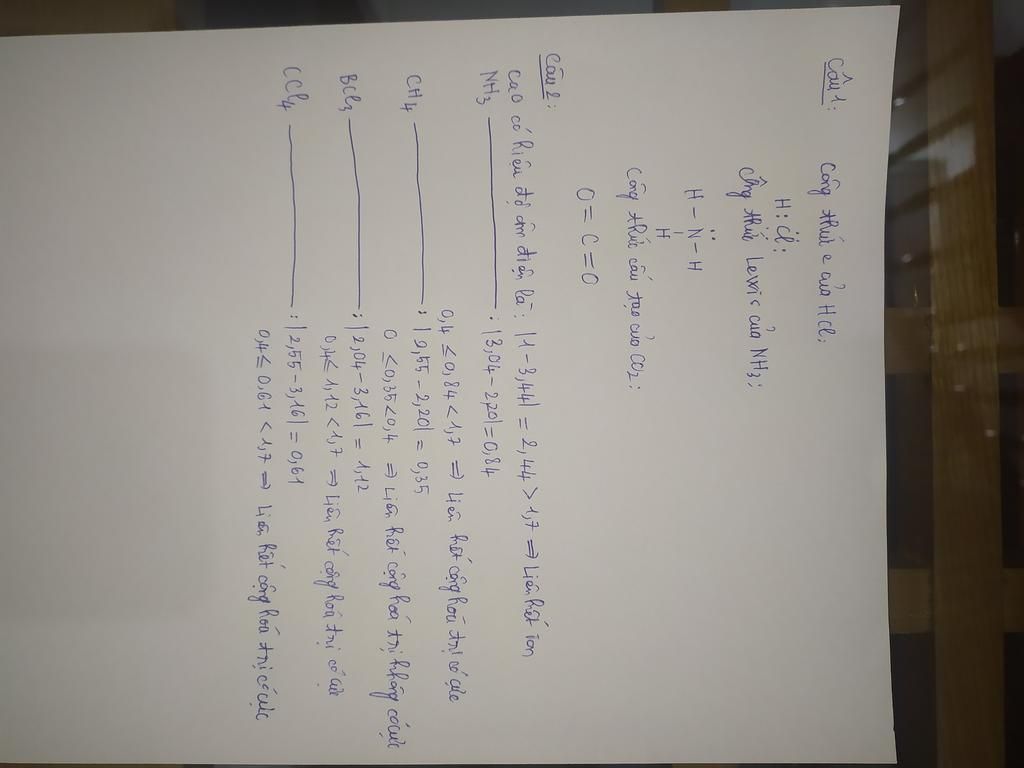 Câu 1: Công thức e của HCl:
H:C̈l:
Công thức Lewis của NH3:
H-N̈-H
H
Công thức cấu tạo của CO2:
O=C=O
Câu 2:
CaO có hiệu độ âm điện là: |1-3,44| = 2,44 > 1,7 => Liên kết ion
NH3 ———: |3,04-2,20| = 0,84
0,4 ≤ 0,84 < 1,7 => Liên kết cộng hoá trị có cực
CH4 ———: |2,55-2,20| = 0,35
0 ≤ 0,35 < 0,4 => Liên kết cộng hoá trị không có cực
BCl3 ———: |2,04-3,16| = 1,12
0,4 ≤ 1,12 < 1,7 => Liên kết cộng hoá trị có cực
CCl4 ———: |2,55-3,16| = 0,61
0,4 ≤ 0,61 < 1,7 => Liên kết cộng hoá trị có cực